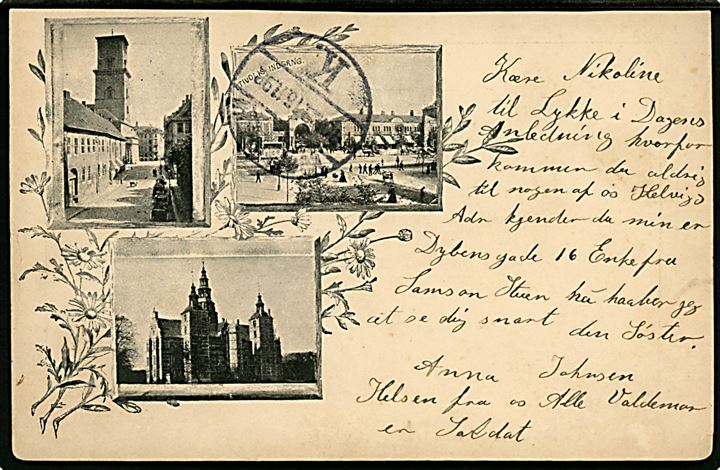 TIVOLIS INDGANG.
K
Kære Nikoline
til Lykke i Dagens
Anledning hvorfor
kommer du aldrig
til nogen af os Helvigs
Adr kjender du min er
Dybensgade 16 Enkefru
Samson Huen nu haaber jeg
at se dig snart din Søster.
Anna Johnsen
Helsen fra os Alle Valdemar
er Soldat